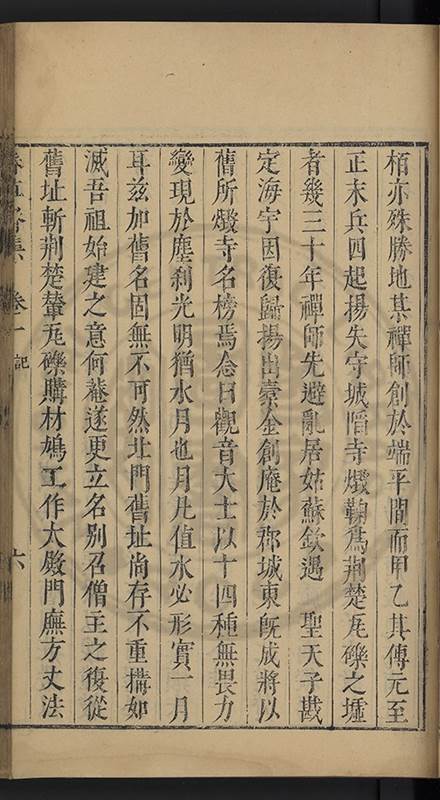 栢亦殊勝地某禪師創於端平間而甲乙其傳元至
正末兵四起揚失守城隳寺燬鞠為荆楚瓦礫之墟
者幾三十年禪師先避亂居姑蘇欽遇　聖天子戡
定海宇因復歸揚出橐金創庵於郡城東旣成將以
舊所燬寺名榜焉念曰觀音大士以十四種無畏力
變現於塵刹光明猶水月也月凡值水必形實一月
耳兹加舊名固無不可然北門舊址尚存不重搆如
滅吾祖始建之意何菴遂更立名别召僧主之復從
舊址斬荆楚輦瓦礫購材鳩工作大殿門廡方丈法
卷一　記　六